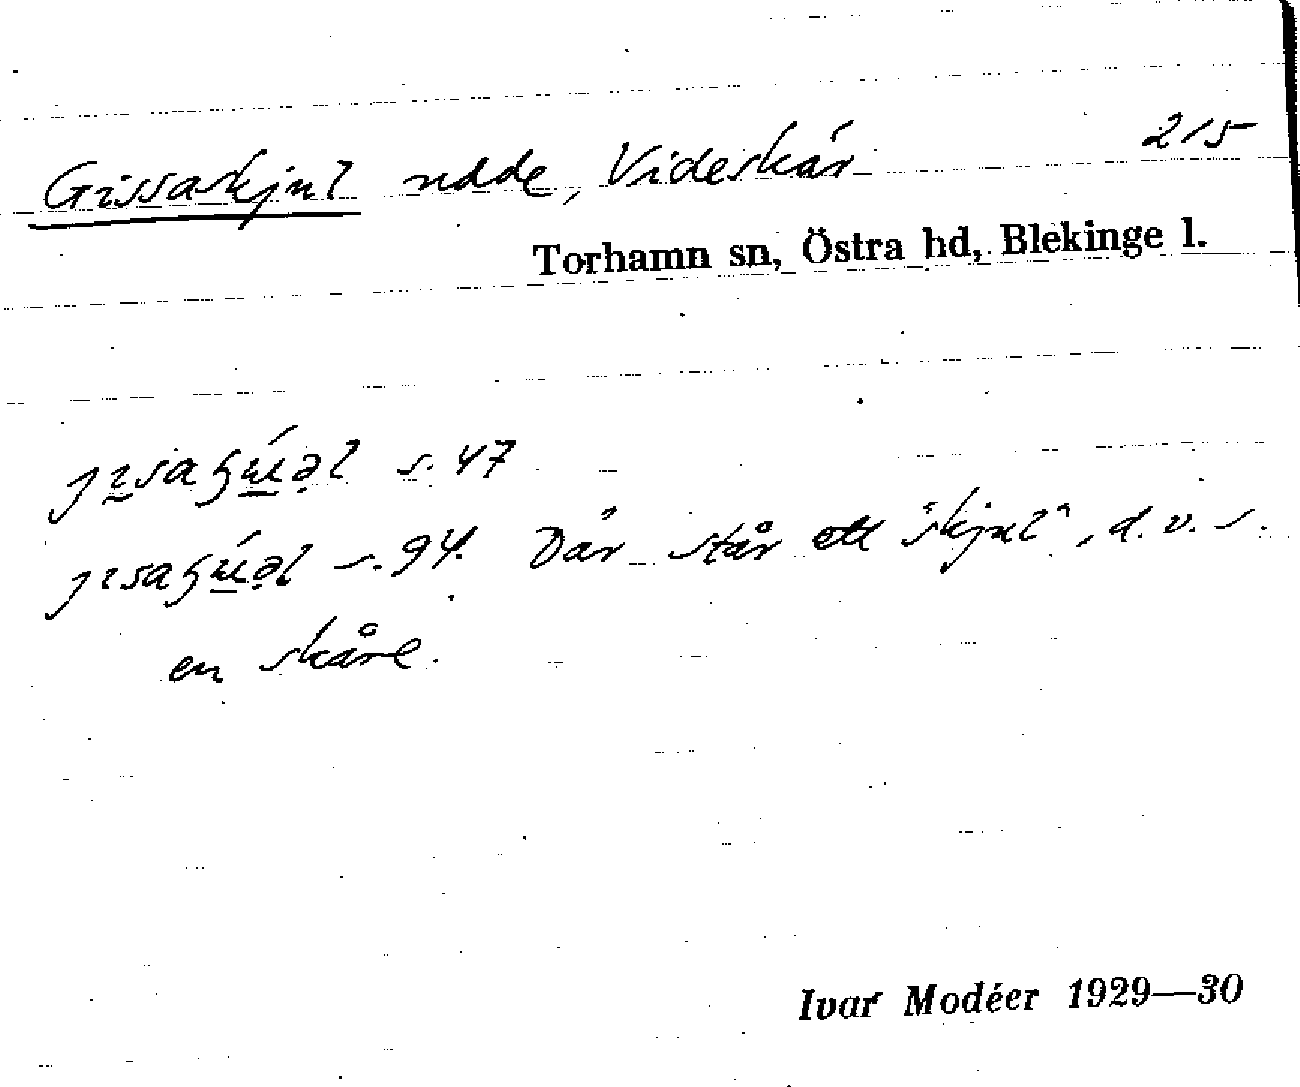 Gissaskjul udde, Videskär 215
Torhamn sn, Östra hd, Blekinge l.
s. 47
s. 94. Där står ett "skjul", d.v.s.
en skåre.
Ivar Modéer 1929—30